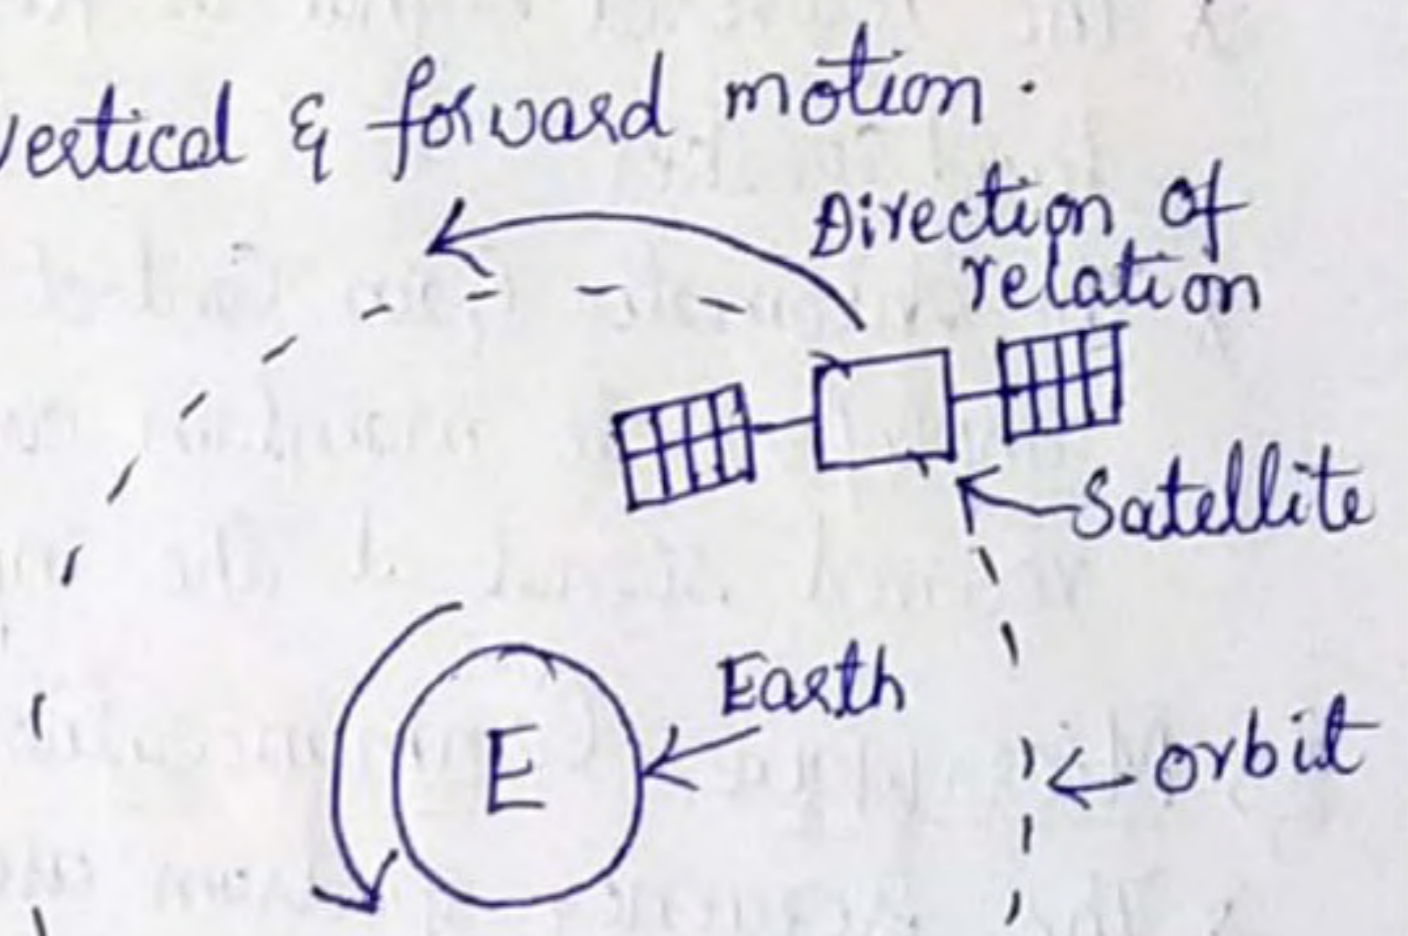 vertical & forward motion.
Direction of
relation
Satellite
Earth
E
orbit